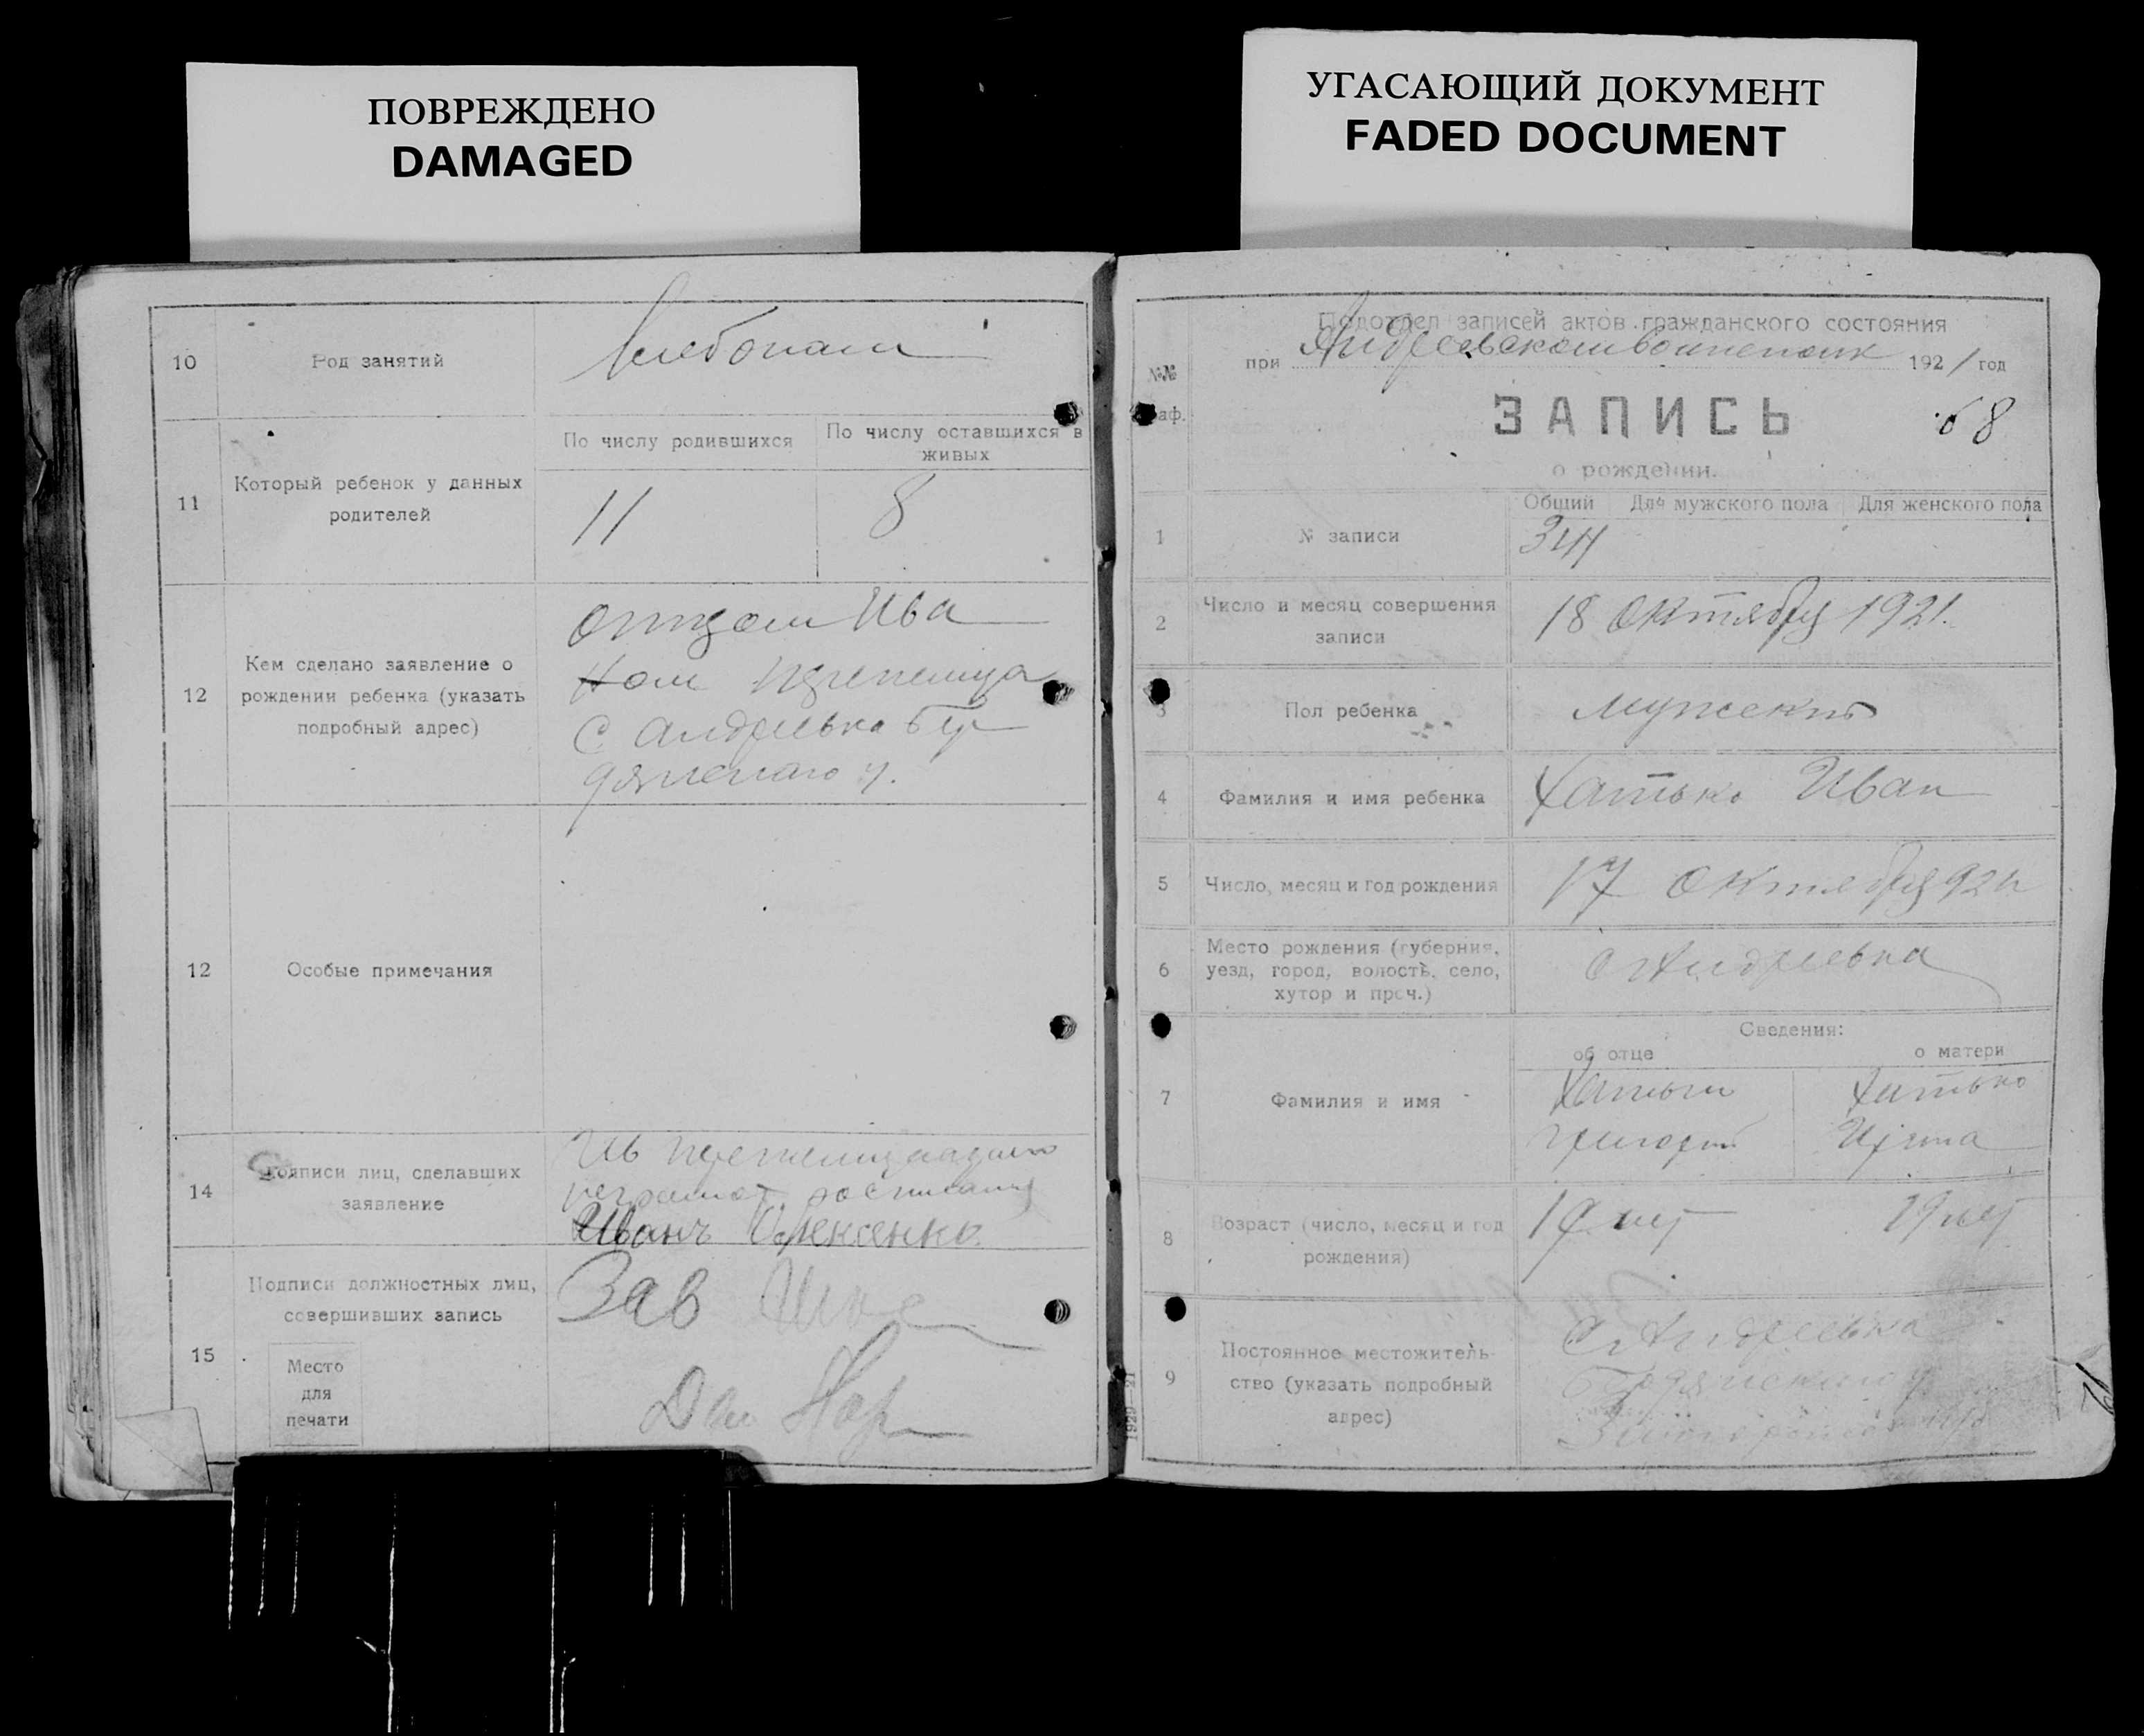 ПОВРЕЖДЕНО
DAMAGED
УГАСАЮЩИЙ ДОКУМЕНТ
FADED DOCUMENT
10
Род занятий
хлебопаш
11
Который ребенок у данных
родителей
По числу родившихся
По числу оставшихся в
живых
11
8
12
Кем сделано заявление о
рождении ребенка (указать
подробный адрес)
Отцом Ива
ном
с Андреевка Бер
дянского у.
12
Особые примечания
14
Подписи лиц, сделавших
заявление
Ив
неграмот
Иванъ
15
Подписи должностных лиц,
совершивших запись
Место
для
печати
Зав
Подотдел записей актов гражданского состояния
№№
при Андреевском 1921 год
аф.
ЗАПИСЬ
68
о рождении.
Общий
Для мужского пола
Для женского пола
1
№ записи
344
2
Число и месяц совершения
записи
18 Октября 1921.
3
Пол ребенка
мужский
4
Фамилия и имя ребенка
Хатько Иван
5
Число, месяц и год рождения
17 Октября 921
6
Место рождения (губерния,
уезд, город, волость, село,
хутор и проч.)
с Андреевка
Сведения:
об отце
о матери
7
Фамилия и имя
Хатько
Хатько
Григорий
8
Возраст (число, месяц и год
рождения)
19 лет
19 лет
9
Постоянное местожитель-
ство (указать подробный
адрес)
с Андреевка
Бердянского у
1929—21